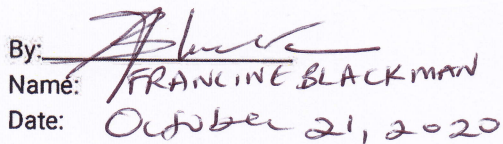 By:
Name: FRANCINE BLACKMAN
Date: October 21, 2020